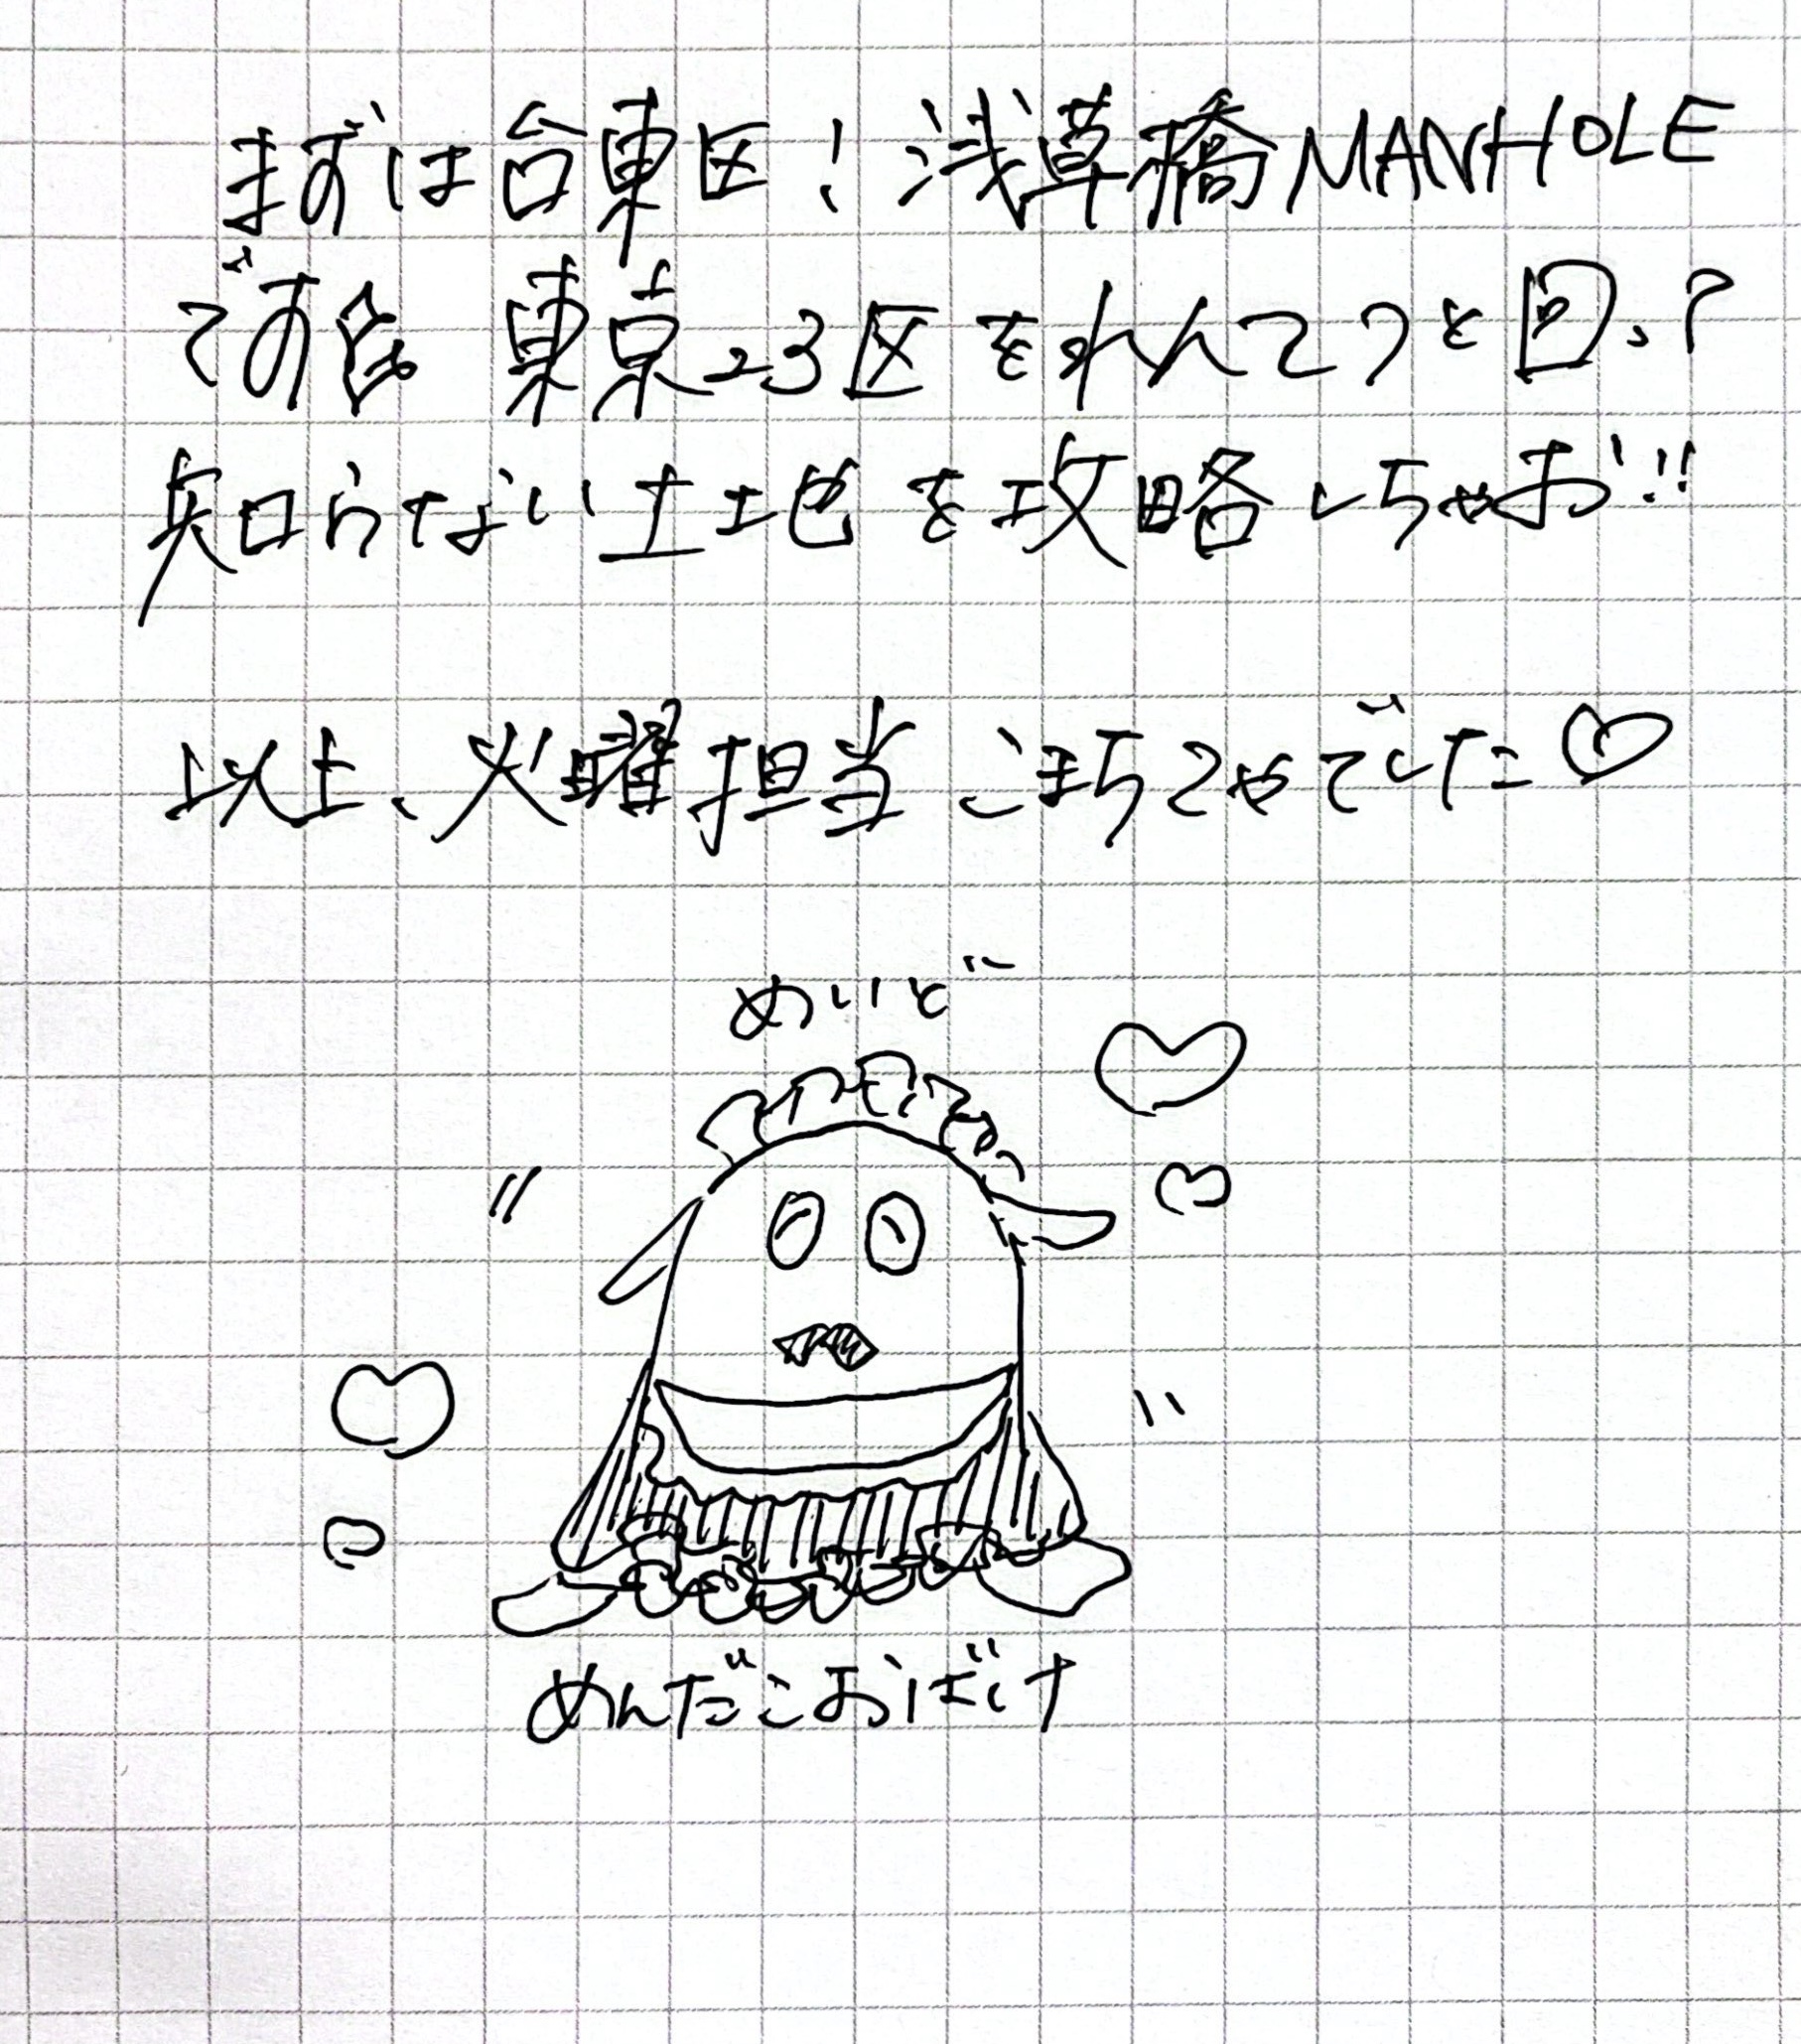 まずは台東区!浅草橋MANHOLE
です
東京23区をれんてつと回って
知らない土地を攻略しちゃお!!
以上、火曜担当こまちちゃでした♡
めいど
めんだこおばけ